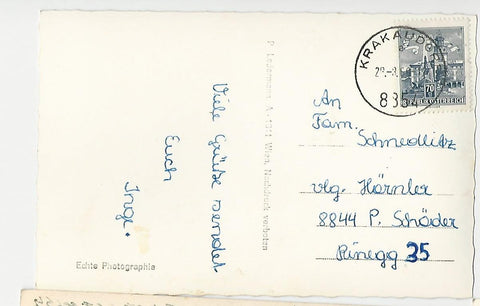 Viele Grüße sendet
Euch
Inge.
P. Ledermann, A-1014 Wien, Nachdruck verboten
Echte Photographie
KRAKAUDO
70
REPUBLIK ÖSTERREICH
An
Fam.
Schnedlitz
vlg. Hörnler
8844 P. Schöder
Rinegg 35